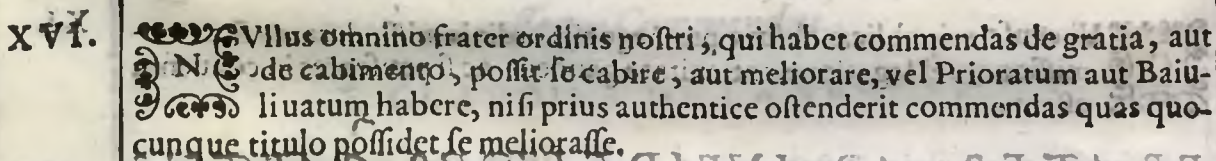 XVI. NVllus omnino frater ordinis noſtri, qui habet commendas de gratia, aut
de cabimento, poſſit ſe cabire, aut meliorare, vel Prioratum aut Baiu-
liuatum habere, niſi prius authentice oſtenderit commendas quas quo-
cunque titulo poſſidet ſe melioraſſe.